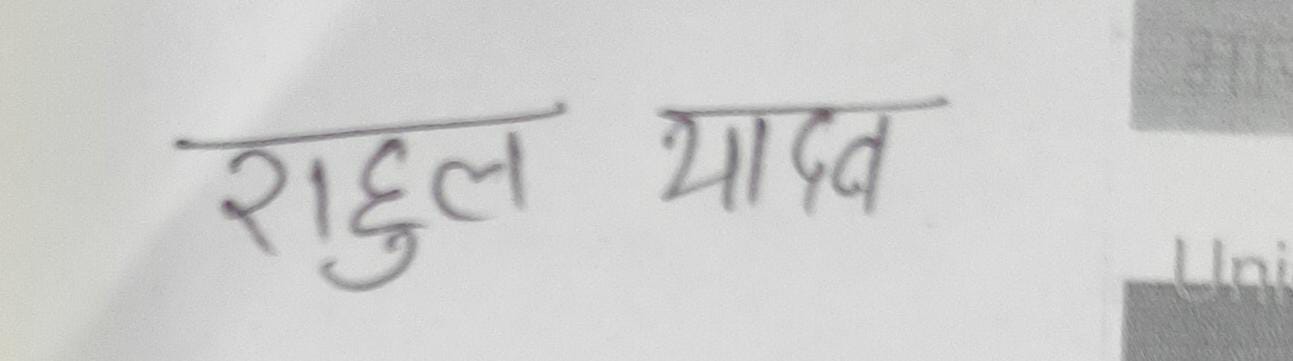 राहुल यादव
Uni